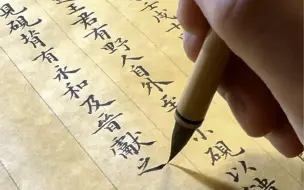 王君有野人自外至小硯以
見硯背有永和及晉獻之